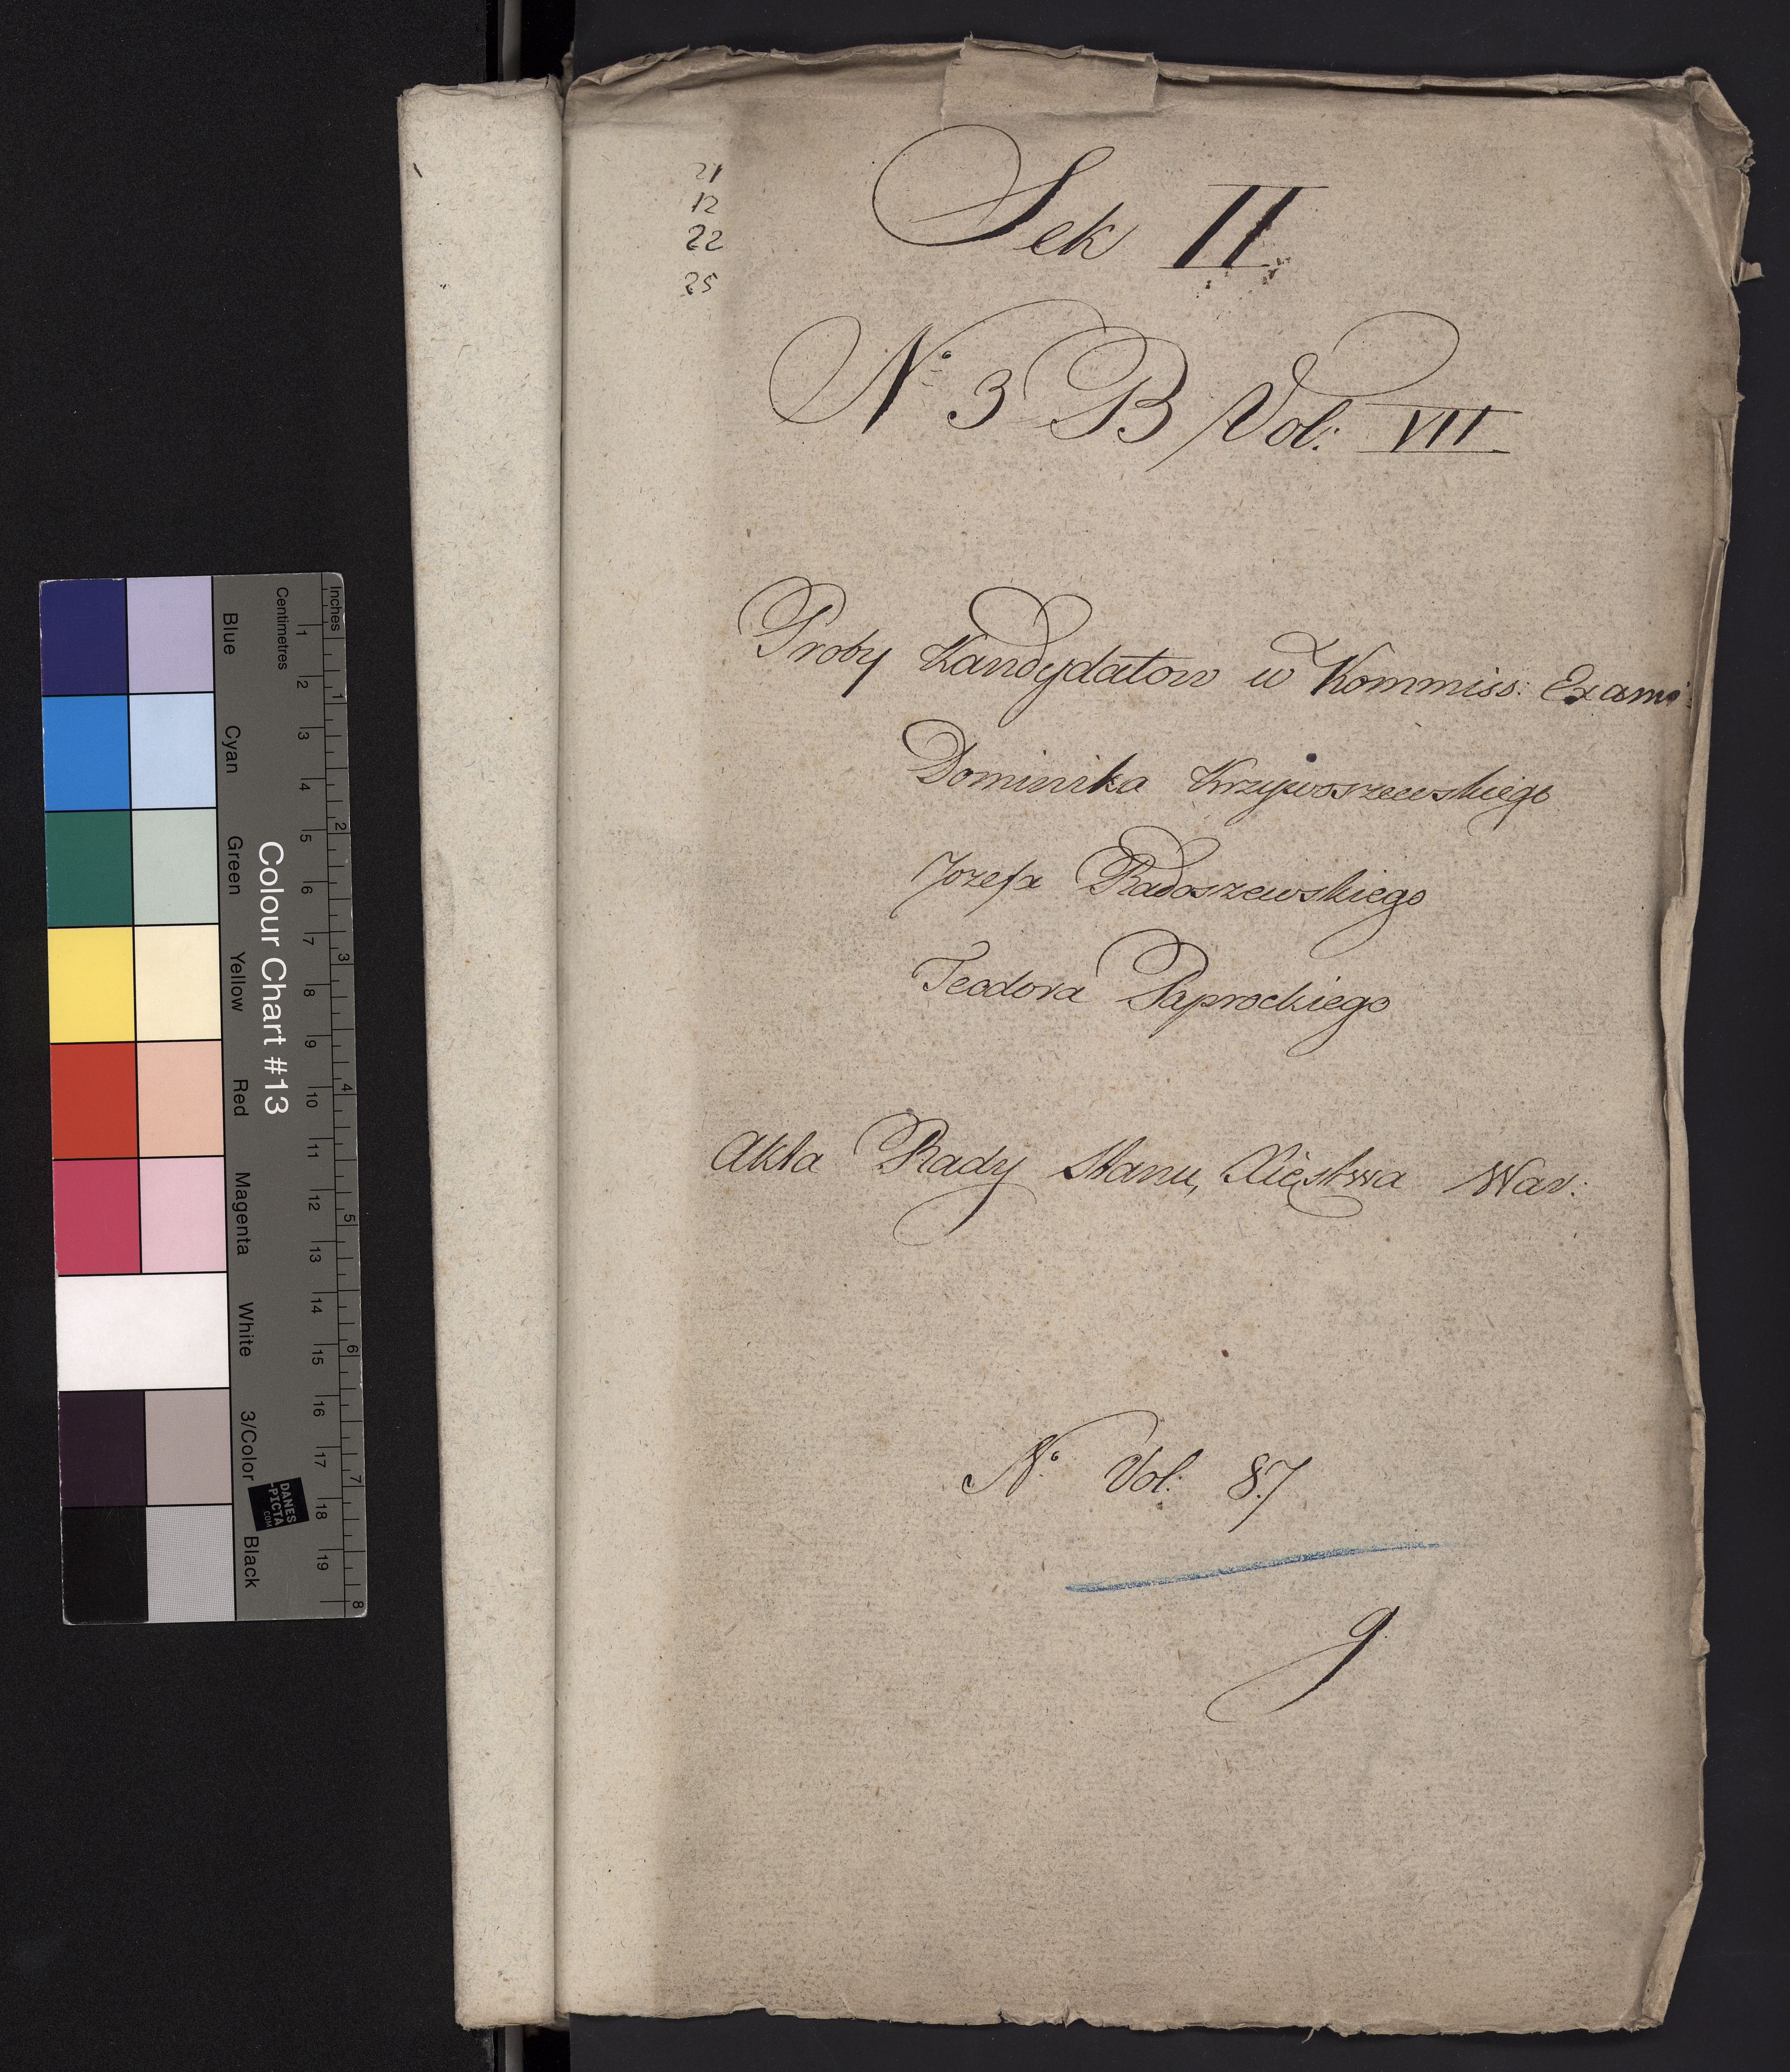 21
12
22
25
Sek II.
Nº 3 B Vol: VII.
Proby Kandydatow w Kommiss: Exami:
Dominika Krzywoszewskiego
Jozefa Radoszewskiego
Teodora Paprockiego
Akta Rady Stanu, Xięstwa War:
Nº Vol: 87
9
Inches
Centimetres
1 2 3 4 5 6 7 8 9 10 11 12 13 14 15 16 17 18 19
1 2 3 4 5 6 7 8
Colour Chart #13
Blue Cyan Green Yellow Red Magenta White 3/Color Black
DANES
-PICTA
.COM